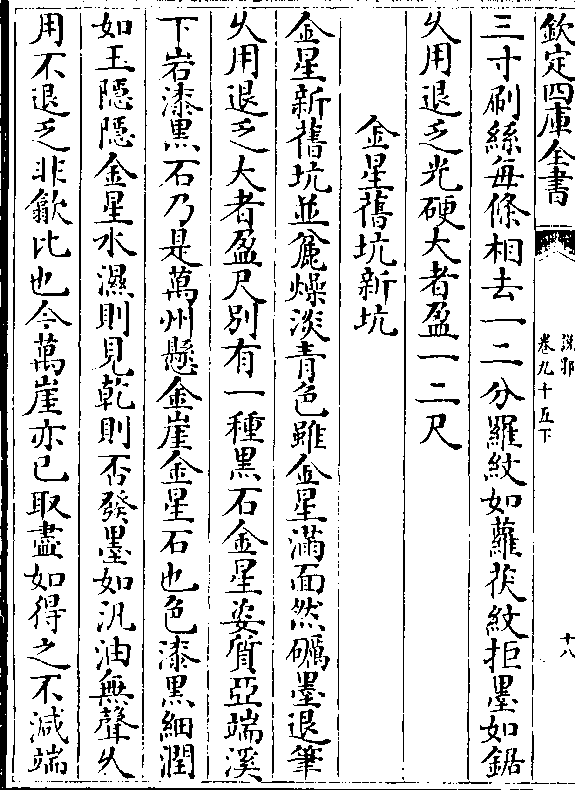 欽定四庫全書
說郛
卷九十五下
十八
三寸刷絲每條相去一二分羅紋如蘿茯紋拒墨如鋸
乆用退乏光硬大者盈一二尺
金星舊坑新坑
金星新舊坑並麄燥淡青色雖金星滿面然礪墨退筆
乆用退乏大者盈尺別有一種黒石金星姿質亞端溪
下岩漆黒石乃是萬州懸金崖金星石也色漆黒細潤
如玉隠隠金星水濕則見乾則否發墨如汎油無聲乆
用不退乏非歙比也今萬崖亦已取盡如得之不減端